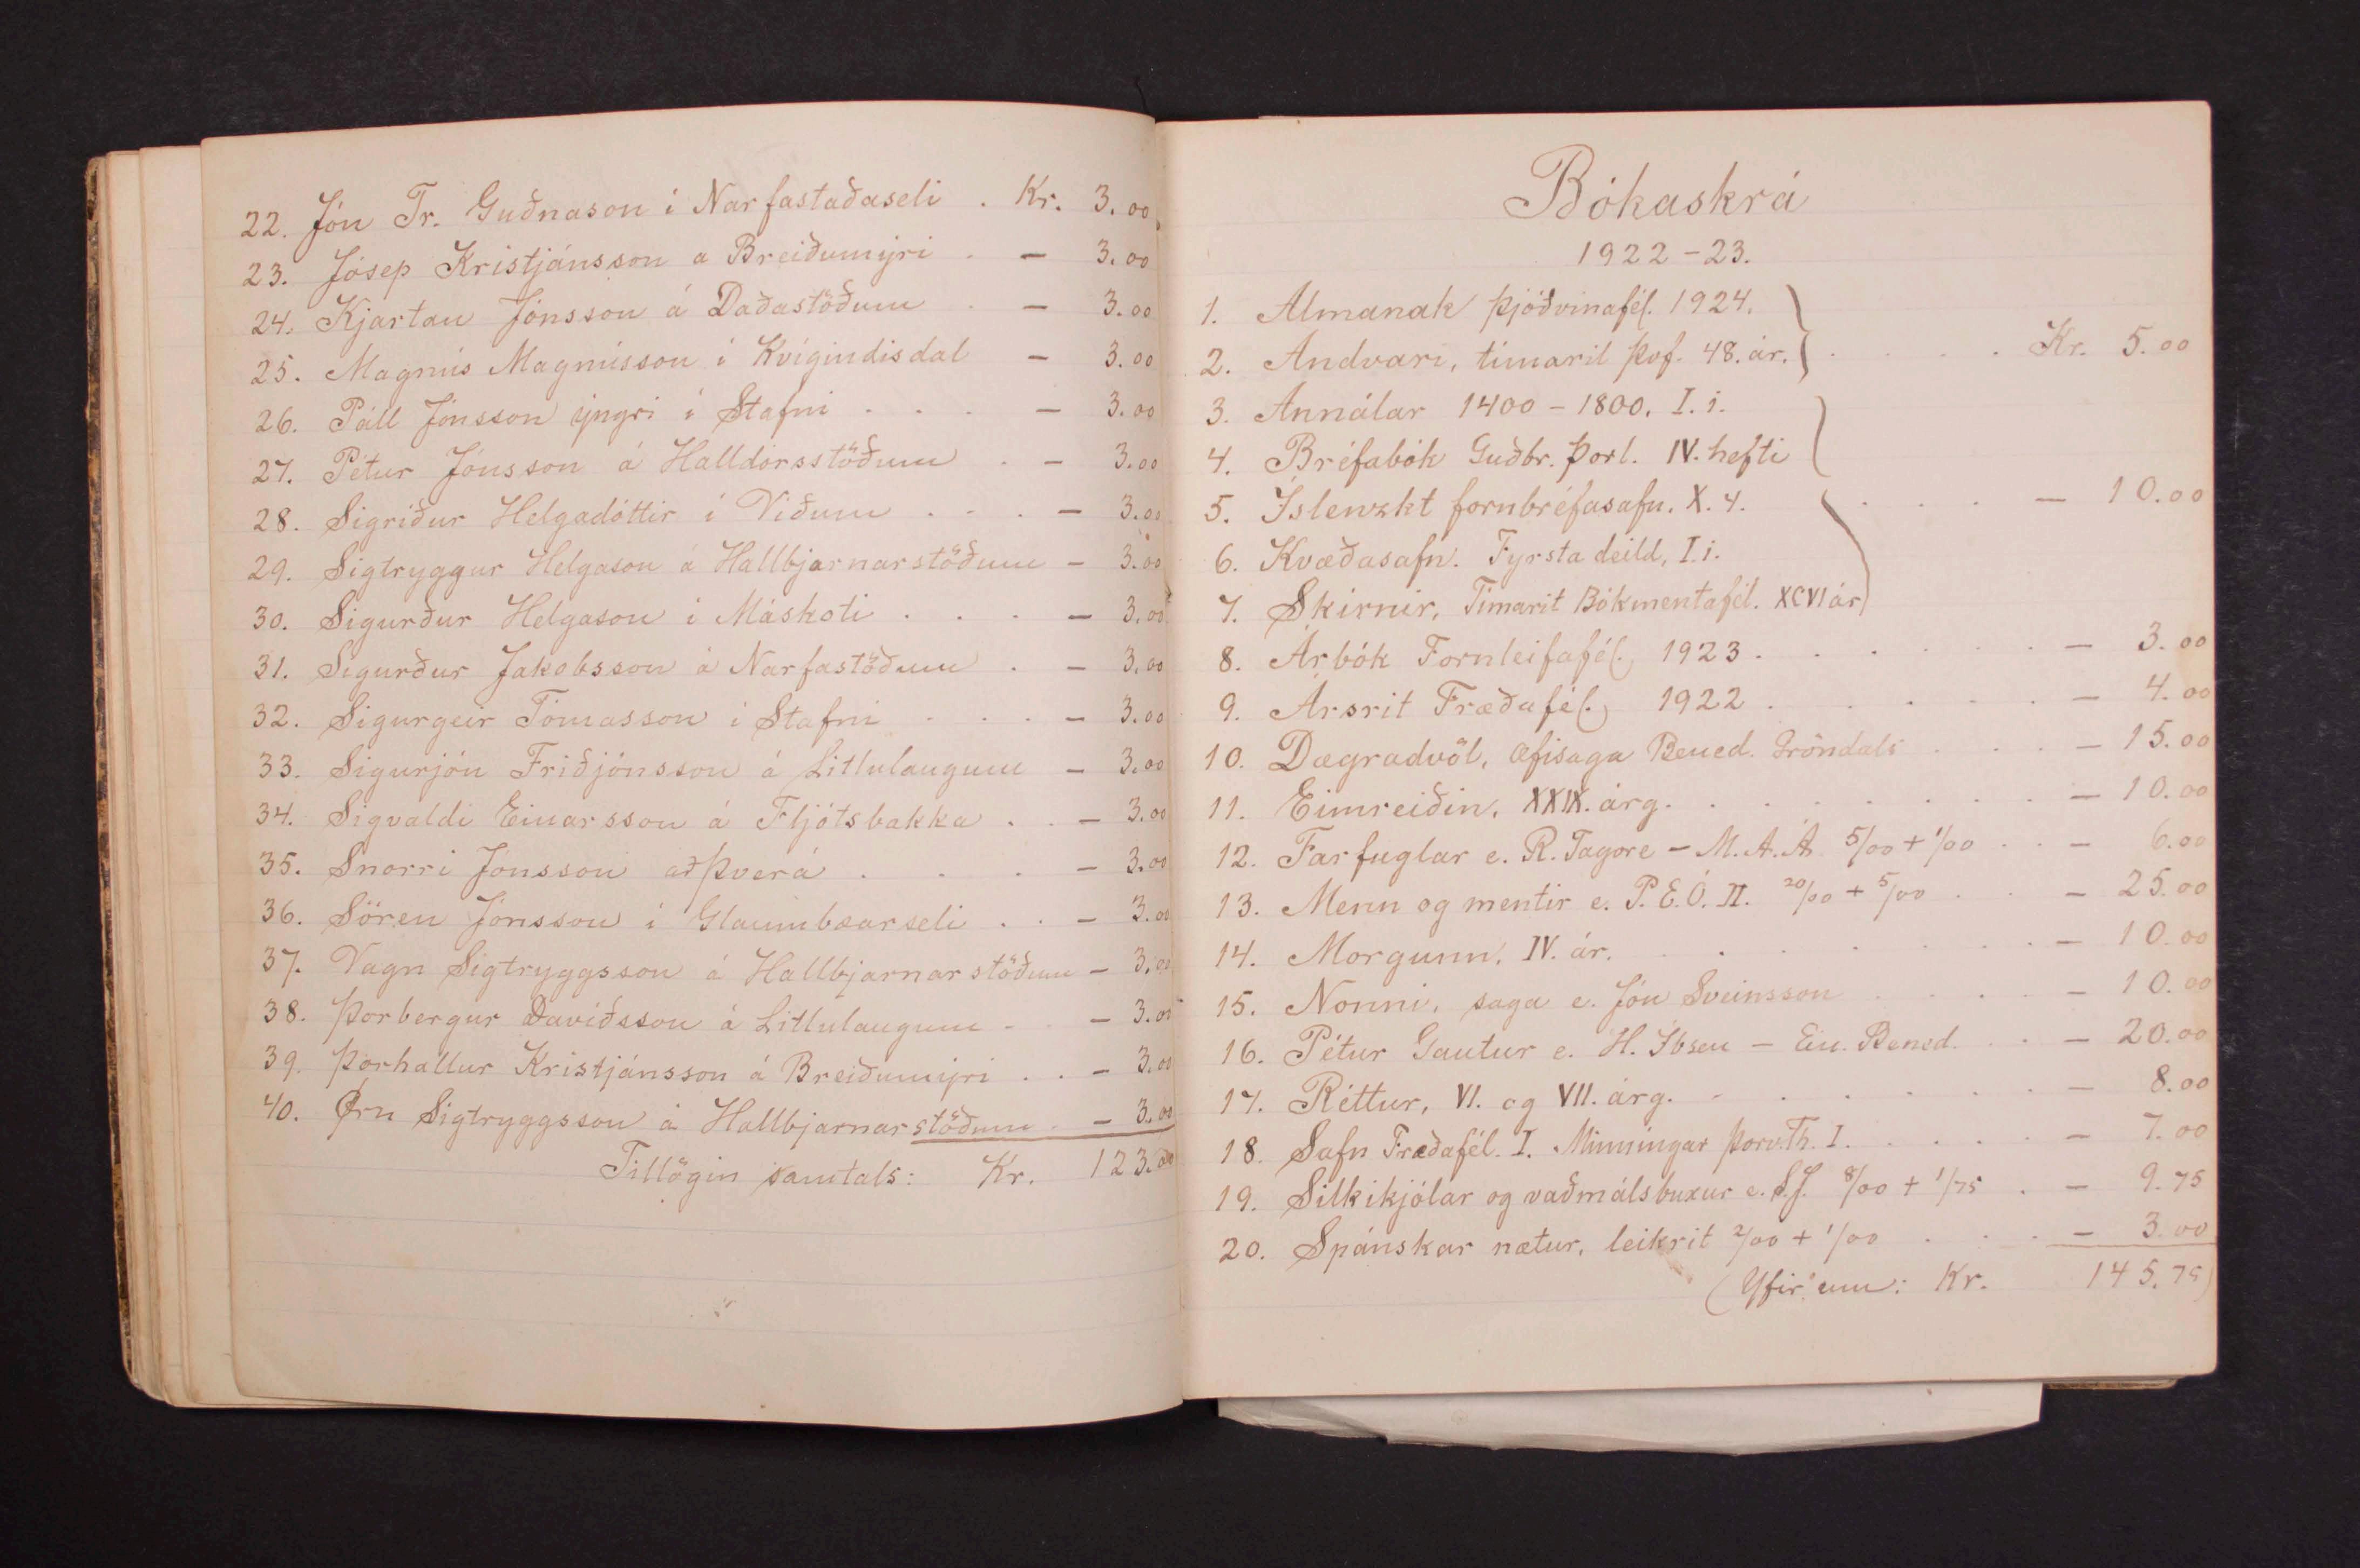 22. Jón Tr. Guðnason í Narfastaðaseli . Kr. 3.00
23. Jósep Kristjánsson a Breiðumýri . — 3.00
24. Kjartan Jónsson á Daðastöðum . — 3.00
25. Magnús Magnússon í Kvígindisdal — 3.00
26. Páll Jónsson yngri í Stafni . . . — 3.00
27. Pétur Jónsson á Halldórsstöðum . — 3.00
28. Sigríður Helgadóttir í Víðum . . . — 3.00
29. Sigtryggur Helgason á Hallbjarnarstöðum — 3.00
30. Sigurður Helgason í Máskoti . . . — 3.00
31. Sigurður Jakobsson á Narfastöðum . — 3.00
32. Sigurgeir Tómasson í Stafni . . . — 3.00
33. Sigurjón Friðjónsson á Litlulaugum — 3.00
34. Sigvaldi Einarsson á Fljótsbakka . . — 3.00
35. Snorri Jónsson að Þverá . . . — 3.00
36. Sören Jónsson í Glaumbæarseli . . — 3.00
37. Vagn Sigtryggsson á Hallbjarnarstöðum — 3.00
38. Þorbergur Davíðsson á Litlulaugum . . — 3.00
39. Þórhallur Kristjánsson á Breiðumýri . . — 3.00
40. Örn Sigtryggsson á Hallbjarnarstöðum . — 3.00
Tillögin samtals: Kr. 123.00
Bókaskrá
1922-23.
1. Almanak Þjóðvinafél. 1924.
2. Andvari, tímarit Þvf. 48. ár. . . . . Kr. 5.00
3. Annálar 1400-1800. I. i.
4. Bréfabók Guðbr. Þorl. IV. hefti
5. Íslenzkt fornbréfasafn. X. 4. . . . — 10.00
6. Kvæðasafn. Fyrsta deild, I. i.
7. Skírnir, Tímarit Bókmentafél. XCVI ár
8. Árbók Fornleifafél. 1923 . . . . . . — 3.00
9. Ársrit Fræðafél. 1922 . . . . . — 4.00
10. Dægradvöl, æfisaga Bened. Gröndals . . . — 15.00
11. Eimreiðin, XXIX. árg. . . . . . . . — 10.00
12. Farfuglar e. R. Tagore — M. Á. Á. 5/00 + 1/00 . . — 6.00
13. Menn og mentir e. P. E. Ó. II. 20/00 + 5/00 . . — 25.00
14. Morgunn, IV. ár. . . . . . . — 10.00
15. Nonni, saga e. Jón Sveinsson . . . . — 10.00
16. Pétur Gautur e. H. Ibsen — Ein. Bened. . . — 20.00
17. Réttur, VI. og VII. árg. . . . . . . — 8.00
18. Safn Fræðafél. I. Minningar Þorv. Th. I. . . . . — 7.00
19. Silkikjólar og vaðmálsbuxur e. S. J. 8/00 + 1/75 . — 9.75
20. Spánskar nætur, leikrit 2/00 + 1/00 . . . — 3.00
(Yfir um: Kr. 145.75)